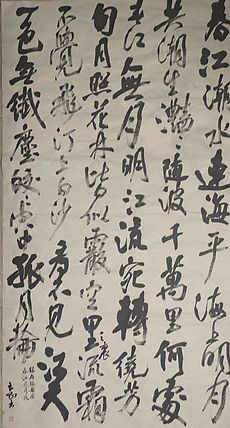 春江潮水連海平海上明月
共潮生灧灧隨波千萬里何處
春江無月明江流宛轉繞芳
甸月照花林皆似霰空里流霜
不覺飛汀上白沙看不見江天
一色無纖塵皎皎空中孤月輪